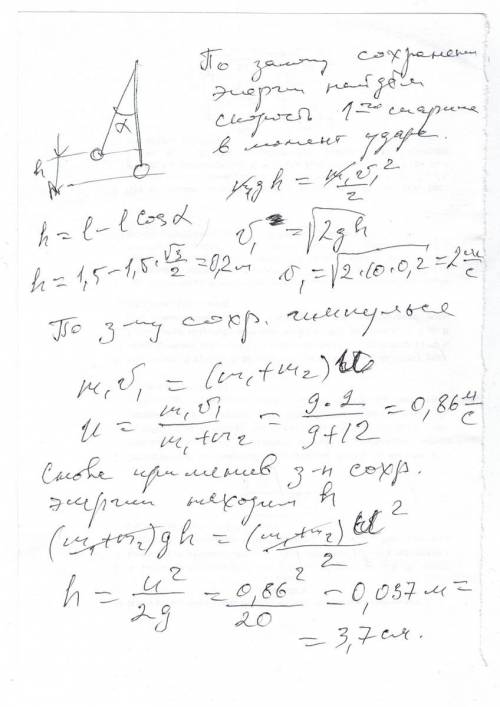 По закону сохранения
энергии найдём
скорость 1-го шарика
в момент удара.
α
h
m₁gh = m₁v₁²/2
h = l - l cos α
v₁ = √2gh
h = 1,5 - 1,5 · √3/2 = 0,2 м
v₁ = √2·10·0,2 = 2 м/с
По з-ну сохр. импульса
m₁v₁ = (m₁+m₂)u
u = m₁v₁/m₁+m₂ = 9·2/9+12 = 0,86 м/с
Снова применив з-н сохр.
энергии находим h
(m₁+m₂)gh = (m₁+m₂)u²/2
h = u²/2g = 0,86²/20 = 0,037 м =
= 3,7 см.